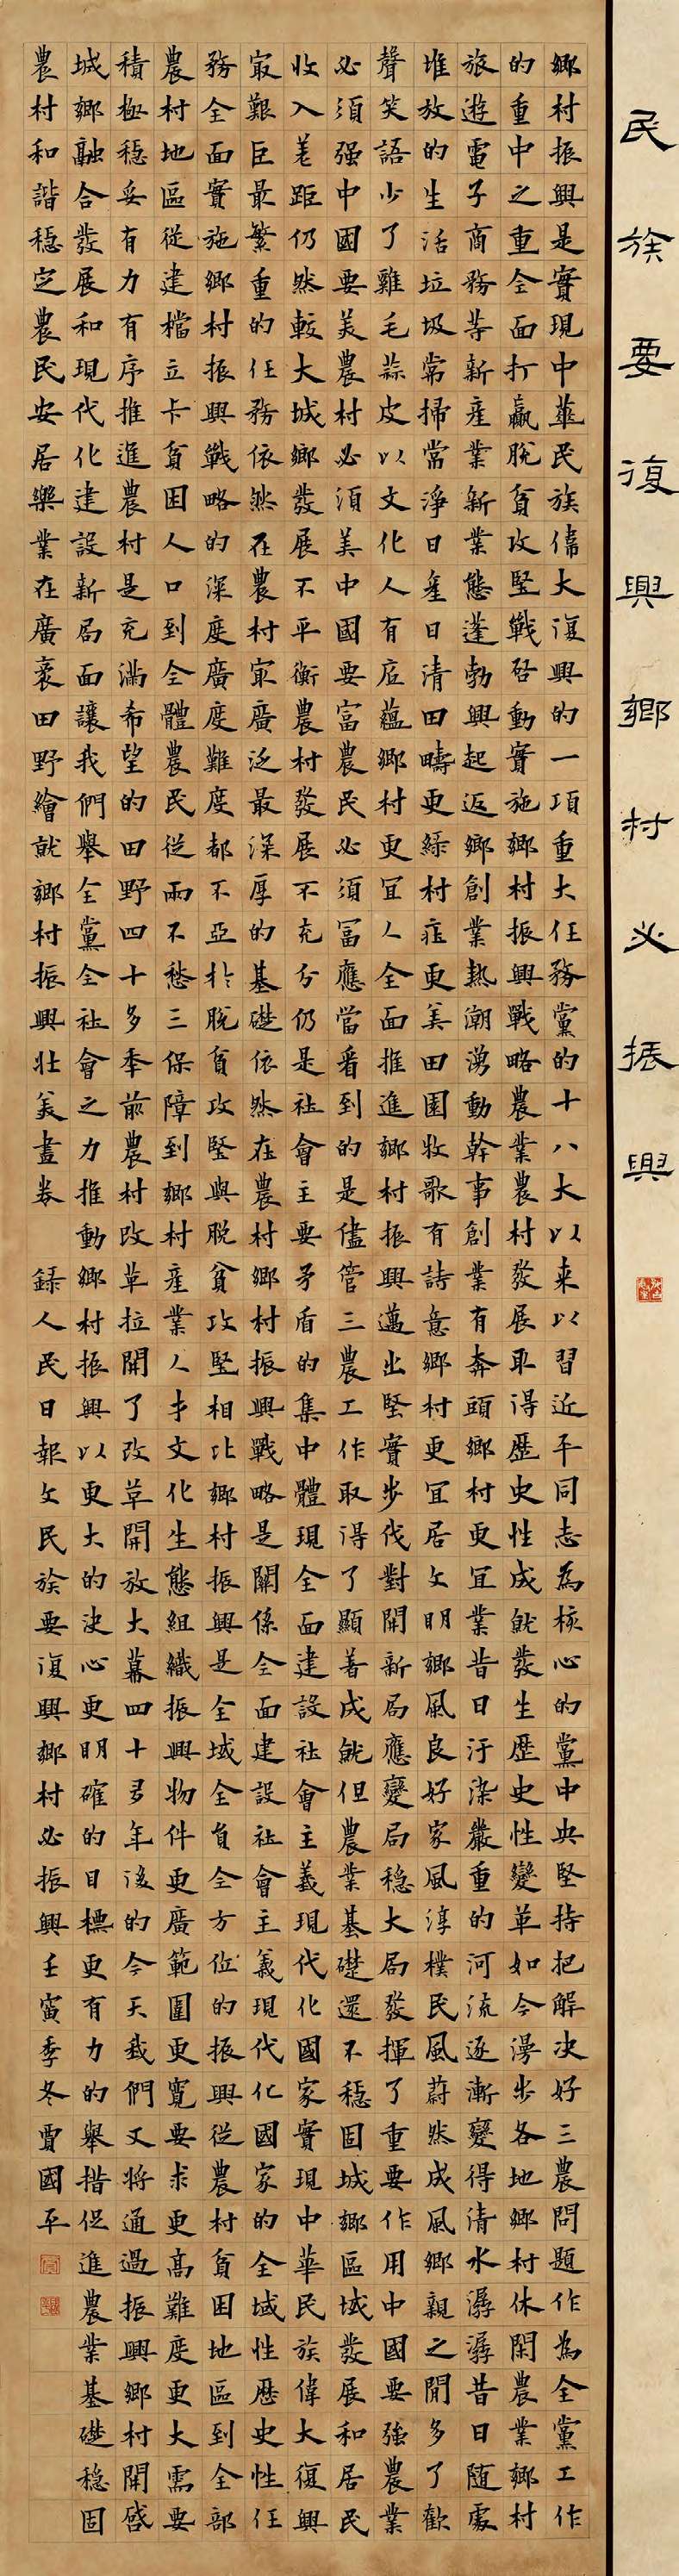 民族要復興鄉村必振興
鄉村振興是實現中華民族偉大復興的一項重大任務黨的十八大以来以習近平同志為核心的黨中央堅持把解决好三農問題作為全黨工作
的重中之重全面打贏脫貧攻堅戰啓動實施鄉村振興戰略農業農村發展取得歷史性成就發生歷史性變革如今漫步各地鄉村休閑農業鄉村
旅遊電子商務等新産業新業態蓬勃興起返鄉創業熱潮湧動幹事創業有奔頭鄉村更宜業昔日汙染嚴重的河流逐漸變得清水潺潺昔日随處
堆放的生活垃圾常掃常淨日産日清田疇更綠村莊更美田園牧歌有詩意鄉村更宜居文明鄉風良好家風淳樸民風蔚然成風鄉親之間多了歡
聲笑語少了雞毛蒜皮以文化人有底蘊鄉村更宜人全面推進鄉村振興邁出堅實步伐對開新局應變局穩大局發揮了重要作用中國要強農業
必須强中國要美農村必須美中國要富農民必須富應當看到的是儘管三農工作取得了顯著成就但農業基礎還不穩固城鄉區域發展和居民
收入差距仍然較大城鄉發展不平衡農村發展不充分仍是社會主要矛盾的集中體現全面建設社會主義現代化國家實現中華民族偉大復興
最艱巨最繁重的任務依然在農村最廣泛最深厚的基礎依然在農村鄉村振興戰略是關係全面建設社會主義現代化國家的全域性歷史性任
務全面實施鄉村振興戰略的深度廣度難度都不亞於脫貧攻堅與脫貧攻堅相比鄉村振興是全域全員全方位的振興從農村貧困地區到全部
農村地區從建檔立卡貧困人口到全體農民從兩不愁三保障到鄉村産業人才文化生態組織振興物件更廣範圍更寬要求更高難度更大需要
積極穩妥有力有序推進農村是充滿希望的田野四十多年前農村改革拉開了改革開放大幕四十多年後的今天我們又將通過振興鄉村開啓
城鄉融合發展和現代化建設新局面讓我們舉全黨全社會之力推動鄉村振興以更大的決心更明確的目標更有力的舉措促進農業基礎穩固
農村和諧穩定農民安居樂業在廣袤田野繪就鄉村振興壯美畫卷 錄人民日報文民族要復興鄉村必振興壬寅季冬賈國平